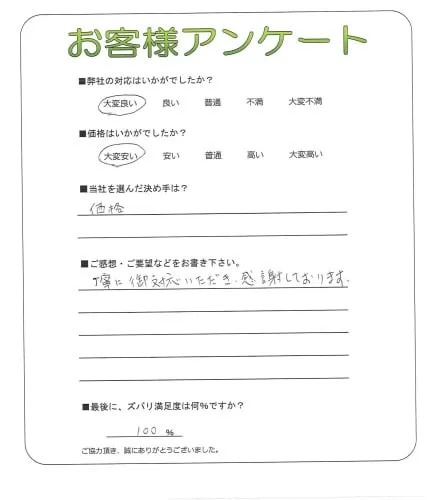 お客様アンケート
■弊社の対応はいかがでしたか?
大変良い 良い 普通 不満 大変不満
■価格はいかがでしたか?
大変安い 安い 普通 高い 大変高い
■当社を選んだ決め手は?
価格
■ご感想・ご要望などをお書き下さい。
丁寧に御対応いただき、感謝しております。
■最後に、ズバリ満足度は何%ですか?
100 %
ご協力頂き、誠にありがとうございました。